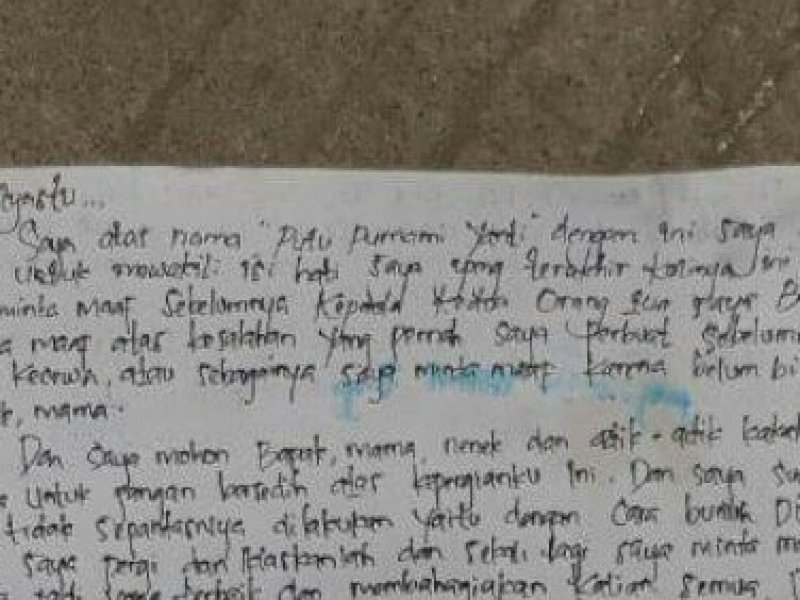 Saya atas nama "Putu Purnami Yanti" dengan ini saya
untuk mewakili isi hati saya yang terakhir kalinya ini
minta maaf sebelumnya kepada kedua orang tua saya
maaf atas kesalahan yang pernah saya perbuat sebelum
atau sebagainya saya minta maaf karena belum bi
mama.
Dan saya mohon Bapak, mama, nenek dan adik-adik
untuk jangan bersedih atas kepergianku ini. Dan saya
tidak sepantasnya dilakukan yaitu dengan cara bunuh Di
saya pergi dan ikhlaskanlah dan sekali lagi saya minta ma
terbaik dan membahagiakan kalian semua.